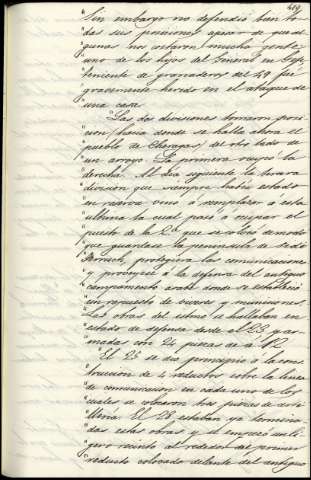 419
"Sin embargo no defendió bien to-
"das sus posiciones apesar de que al-
"gunas nos costaron mucha gente
"uno de los hijos del General en Gefe
"teniente de granaderos del 49 fué
"gravemente herido en el ataque de
"una casa.
"Las dos divisiones tomaron posi-
"cion hacia donde se halla ahora el
"pueblo de del otro lado de
"un arroyo. La primera ocupó la
"derecha. Al dia siguiente la tercera
"division que siempre habia estado
"en reserva vino á remplazar á esta
"ultima la cual pasó á ocupar el
"puesto de la 2ª que se volvió de modo
"que guardase la peninsula de Sidi
"Ferruch, protegiera las comunicaciones
"y proveyese á la defensa del antiguo
"campamento donde se estableció
"un repuesto de viveres y municiones.
"Las obras del istmo se hallaban en
"estado de defensa desde el 23 y ar-
"madas con 24 piezas de á 12.
"El 25 se dio principio á la cons-
"truccion de 4 reductos sobre la linea
"de comunicacion en cada uno de los
"cuales se colocaron tres piezas de arti-
"lleria. El 28 estaban ya termina-
"das estas obras y se empezó un li-
"gero recinto al rededor del primer
"reducto colocado delante del antiguo